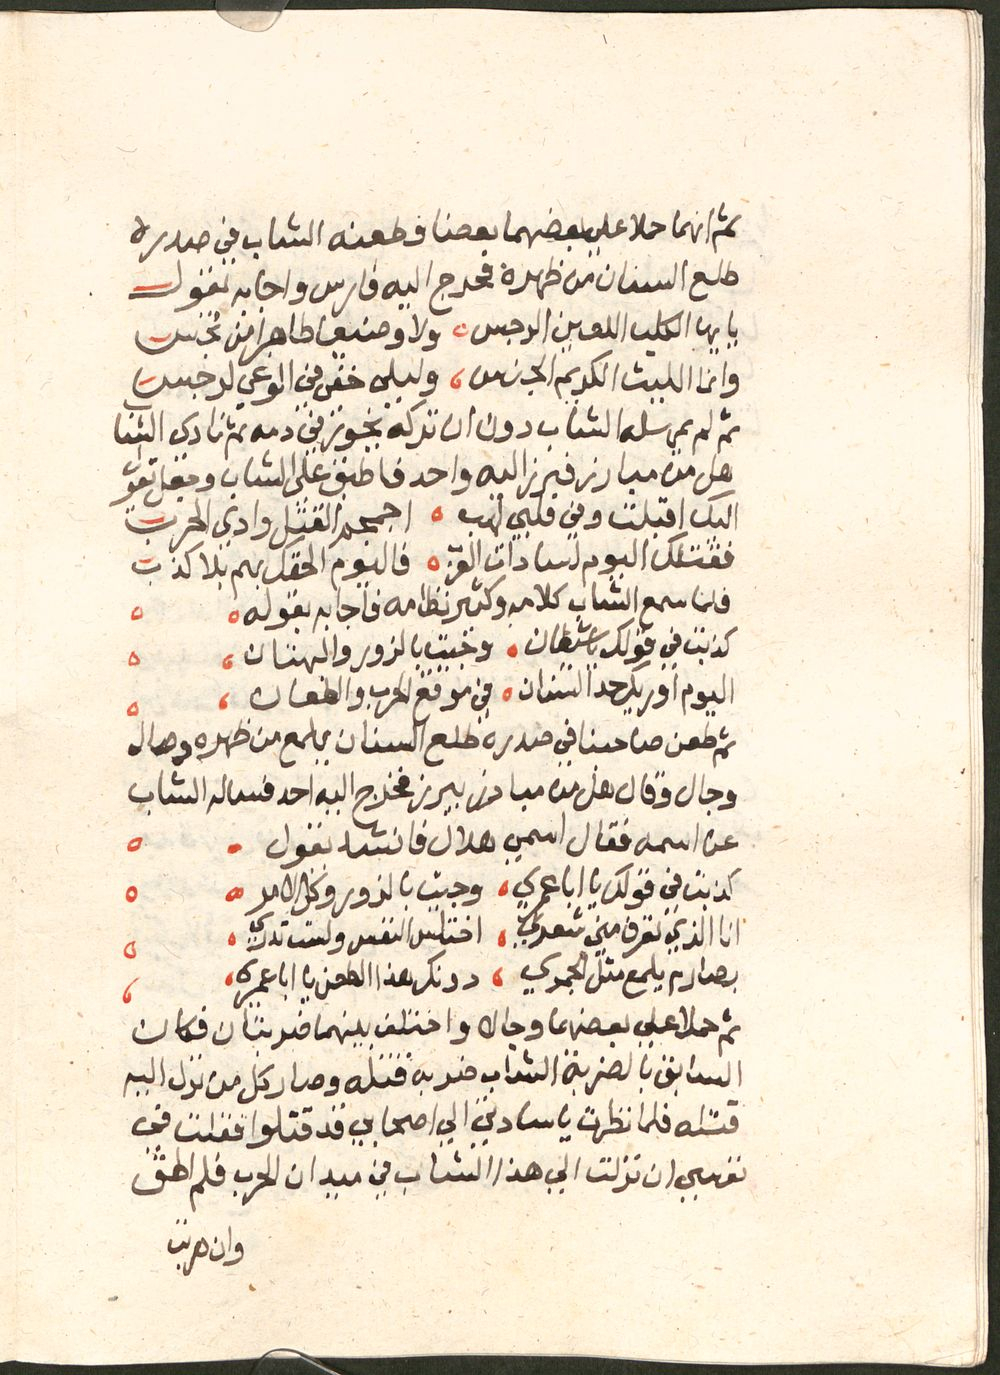 ثم انهما حملا علي بعضهما بعضا فطعنه الشاب في صدره
طلع السنان من ظهره فخرج اليه فارس واجابه بقول
يايها الكلب اللعين الرجس ولا وضيعا طاهرا من نجس
وانا الليث الكريم الجنس وليلي خفي في الوعي لرجس
ثم لم يمرسله الشاب دون ان تركه يخوز في دمه ثم نادي الشاب
هل من مبارز فبرز اليه واحد فاطبق علي الشاب وجعل يقول
اليك اقبلت وفي قلبي لهب القتل وادي الحرب
فقتلك اليوم لسادات العرب فاليوم الحقك بهم بلا كذب
فلما سمع الشاب كلامه وكثير نظامه فاجابه بقوله
كذبت في قولك يا شيطان وجيت بالزور والبهتان
اليوم اوريك حد السنان في موقع الحرب والطعان
ثم طعن صاحبنا في صدره طلع السنان يلمع من ظهره وصال
وجال وقال هل من مبارز يبرز فخرج اليه احد فساله الشاب
عن اسمه فقال اسمي هلال فانشد يقول
كذبت في قولك يا ابا عمري وجيت بالزور وكل الامر
انا الذي تعرف مني شعري اختلس النفس ولست تدري
بصارم يلمع مثل الجمري دونكم هذا الطعن يا ابا عمري
ثم حملا علي بعضهما وجالا واختلف بينهما ضربتان فكان
السابق بالضربة الشاب ضربه قتله وصار كل من نزل اليه
قتله فلما نظرت يا سادتي الي اصحابي قد قتلوا فقلت في
نفسي ان نزلت الي هذا الشاب في ميدان الحرب فلم اطق
وان هربت